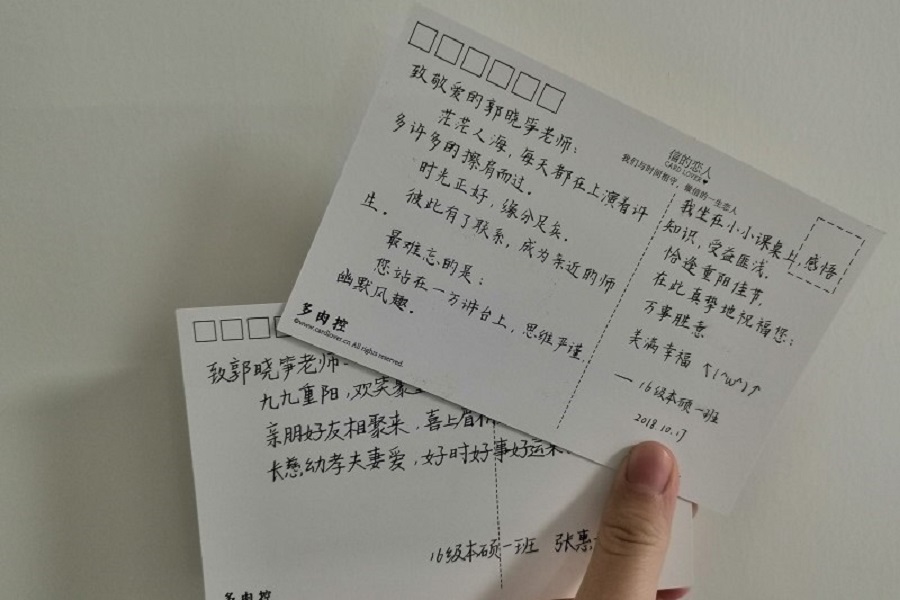 致敬爱的郭晓筝老师：
茫茫人海，每天都在上演着许
多许多的擦肩而过．
时光正好，缘分足矣．
彼此有了联系，成为亲近的师
生．
最难忘的是：
您站在一方讲台上，思维严谨
幽默风趣．
多肉控
©www.cardlover.cn All rights reserved.
信的恋人
CARD LOVER♥
我们与时间相守，做信的一生恋人
我坐在小小课桌斗，感悟
知识，受益匪浅．
恰逢重阳佳节，
在此真挚地祝福您：
万事胜意
美满幸福 ↑(^ω^)↑
— 16级本硕一班
2018.10.17
致郭晓筝老师
九九重阳，欢笑聚
亲朋好友相聚来，喜上眉梢
长慈幼孝夫妻爱，好时好事好运来．
16级本硕一班 张惠
多肉控